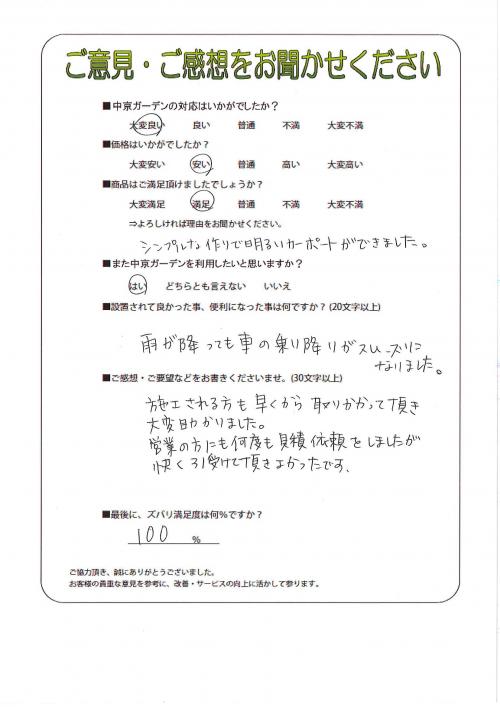 ご意見・ご感想をお聞かせください
■中京ガーデンの対応はいかがでしたか？
大変良い 良い 普通 不満 大変不満
■価格はいかがでしたか？
大変安い 安い 普通 高い 大変高い
■商品はご満足頂けましたでしょうか？
大変満足 満足 普通 不満 大変不満
⇒よろしければ理由をお聞かせください。
シンプルな作りで明るいカーポートができました。
■また中京ガーデンを利用したいと思いますか？
はい どちらとも言えない いいえ
■設置されて良かった事、便利になった事は何ですか？(20文字以上)
雨が降っても車の乗り降りがスムーズに
なりました。
■ご感想・ご要望などをお書きくださいませ。(30文字以上)
施工される方も早くから取りかかって頂き
大変助かりました。
営業の方にも何度も見積依頼をしましたが
快く引受けて頂きよかったです。
■最後に、ズバリ満足度は何％ですか？
100 %
ご協力頂き、誠にありがとうございました。
お客様の貴重な意見を参考に、改善・サービスの向上に活かして参ります。